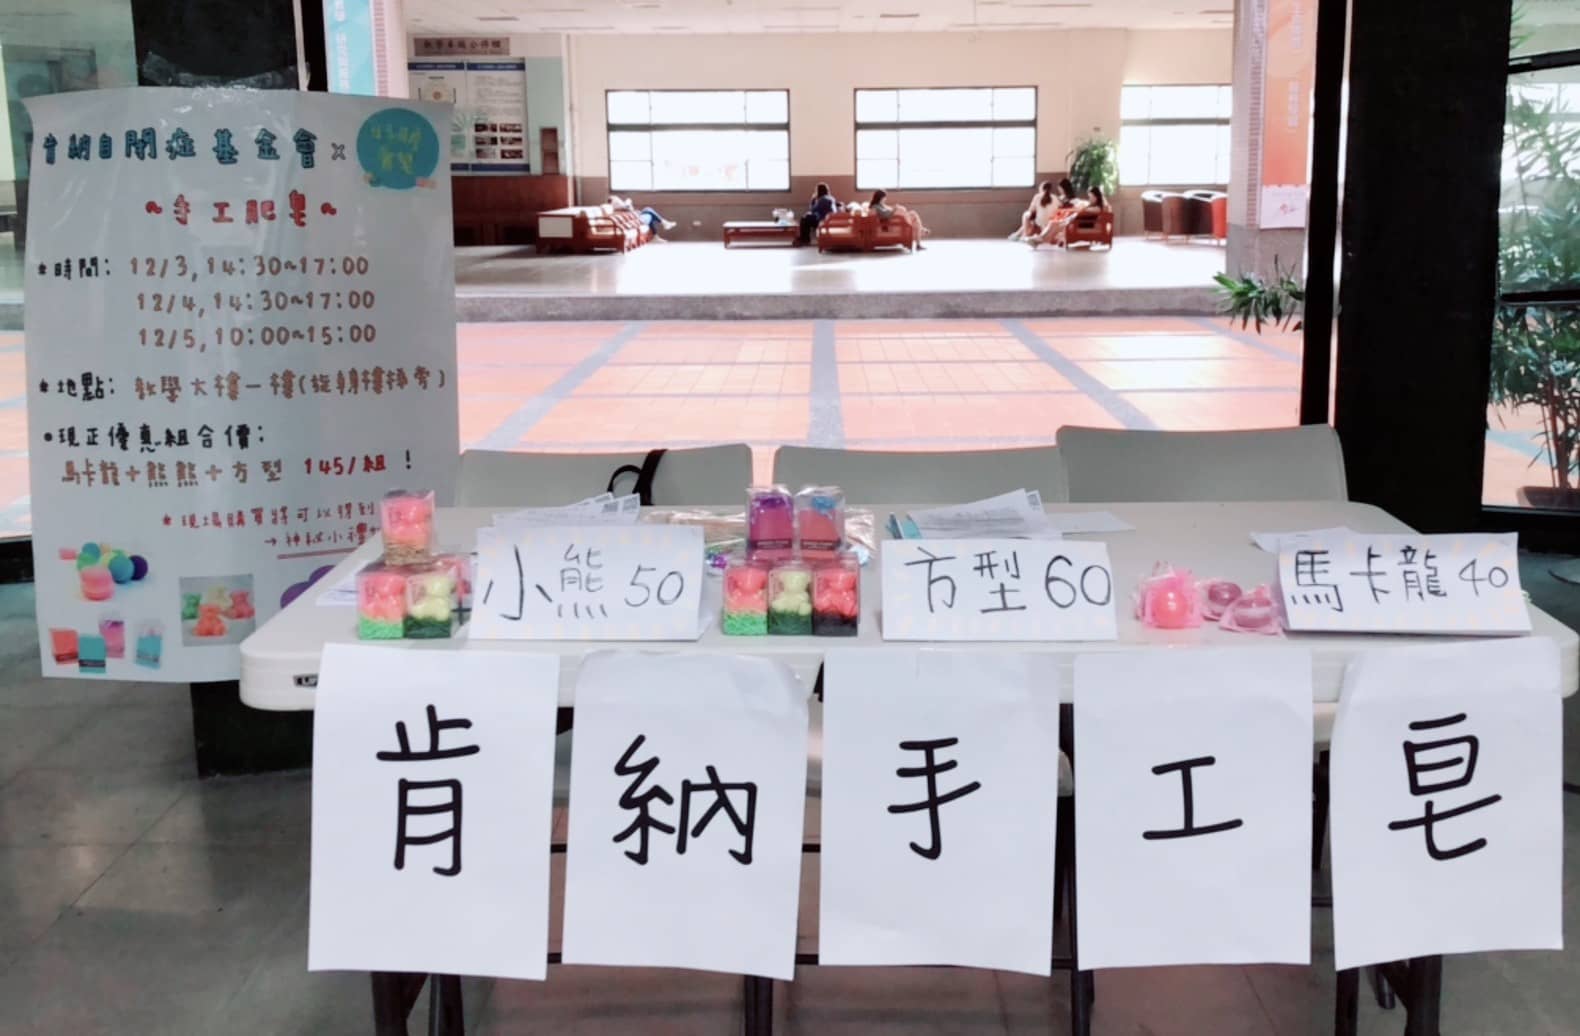 肯納自閉症基金會 x
~手工肥皂~
*時間: 12/3,14:30~17:00
12/4,14:30~17:00
12/5,10:00~15:00
*地點: 教學大樓一樓(旋轉樓梯旁)
•現正優惠組合價:
馬卡龍+熊熊+方型 145/組 !
*現場購買將可以得到
→神秘小禮
小熊 50
方型 60
馬卡龍 40
肯納手工皂